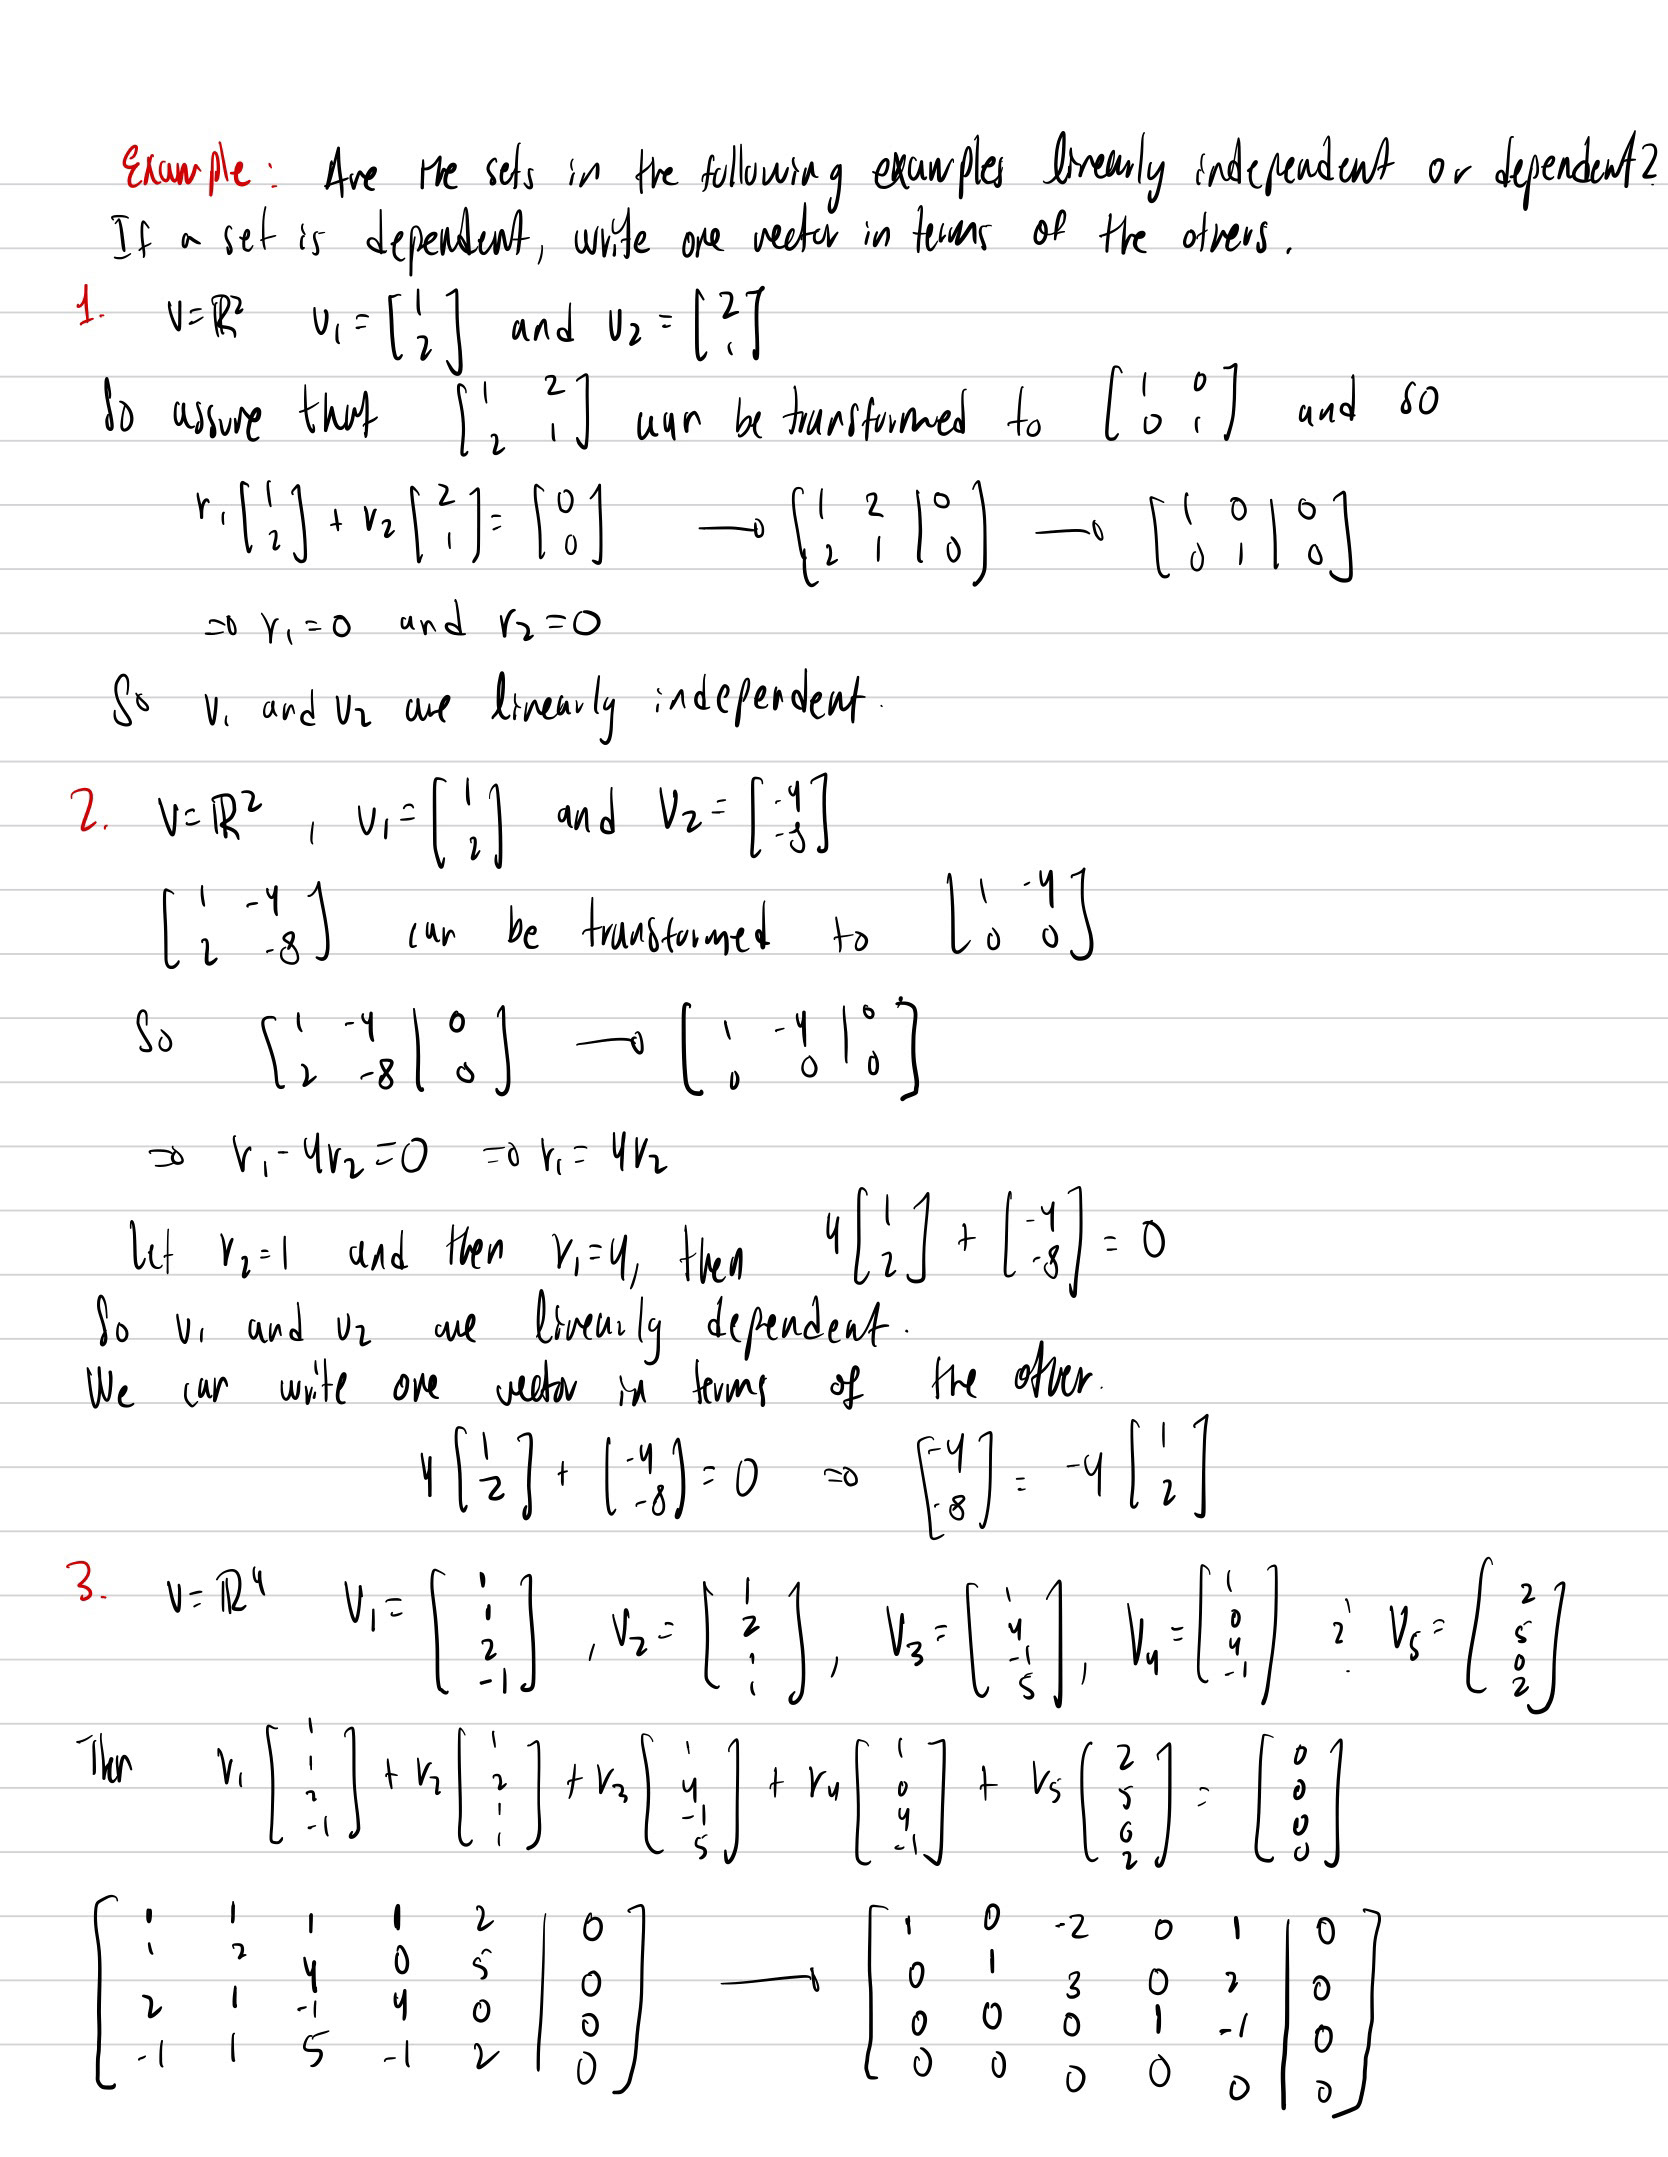 Example: Are the sets in the following examples linearly independent or dependent?
If a set is dependent, write one vector in terms of the others.
1. V=ℝ² v₁ = [1; 2] and v₂ = [2; 1]
So assure that [1 2; 2 1] can be transformed to [1 0; 0 1] and so
r₁[1; 2] + r₂[2; 1] = [0; 0] → [1 2 | 0; 2 1 | 0] → [1 0 | 0; 0 1 | 0]
⇒ r₁=0 and r₂=0
So v₁ and v₂ are linearly independent.
2. V=ℝ² , v₁ = [1; 2] and v₂ = [-4; -8]
[1 -4; 2 -8] can be transformed to [1 -4; 0 0]
So [1 -4 | 0; 2 -8 | 0] → [1 -4 | 0; 0 0 | 0]
⇒ r₁-4r₂=0 ⇒ r₁=4r₂
Let r₂=1 and then r₁=4, then 4[1; 2] + [-4; -8] = 0
So v₁ and v₂ are linearly dependent.
We can write one vector in terms of the other.
4[1; 2] + [-4; -8] = 0 ⇒ [-4; -8] = -4[1; 2]
3. V=ℝ⁴ v₁ = [1; 1; 2; -1] , v₂ = [1; 2; 1; 1] , v₃ = [1; 4; -1; 5] , v₄ = [1; 0; 4; -1] v₅ = [2; 5; 0; 2]
Then r₁[1; 1; 2; -1] + r₂[1; 2; 1; 1] + r₃[1; 4; -1; 5] + r₄[1; 0; 4; -1] + r₅[2; 5; 0; 2] = [0; 0; 0; 0]
[1 1 1 1 2 | 0; 1 2 4 0 5 | 0; 2 1 -1 4 0 | 0; -1 1 5 -1 2 | 0] → [1 0 -2 0 1 | 0; 0 1 3 0 2 | 0; 0 0 0 1 -1 | 0; 0 0 0 0 0 | 0]